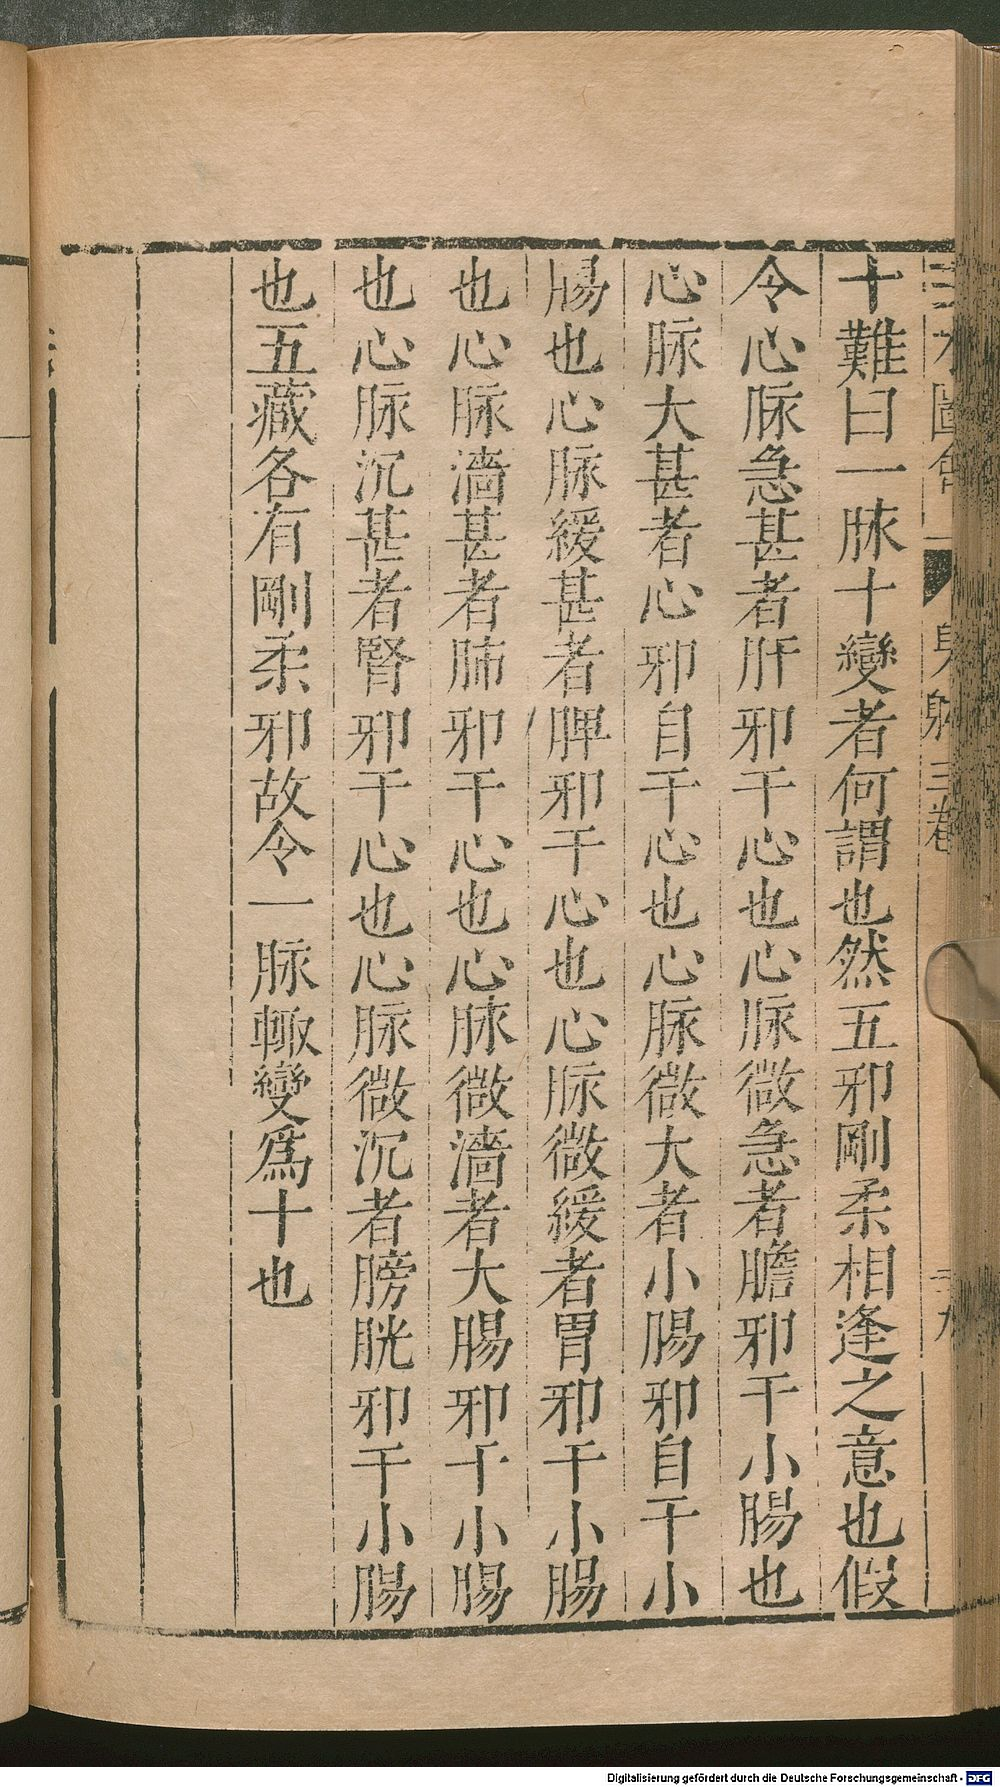 十難曰一脉十變者何謂也然五邪剛柔相逢之意也假
令心脉急甚者肝邪干心也心脉微急者膽邪干小腸也
心脉大甚者心邪自干心也心脉微大者小腸邪自干小
腸也心脉緩甚者脾邪干心也心脉微緩者胃邪干小腸
也心脉濇甚者肺邪干心也心脉微濇者大腸邪干小腸
也心脉沉甚者腎邪干心也心脉微沉者膀胱邪干小腸
也五藏各有剛柔邪故令一脉輙變爲十也
Digitalisierung gefördert durch die Deutsche Forschungsgemeinschaft - DFG